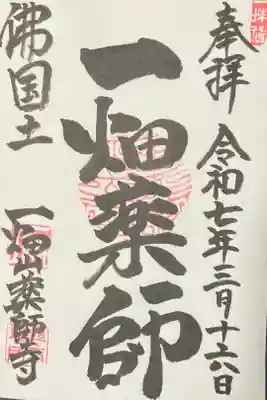 奉拝 令和七年三月十六日
一畑薬師
佛国土 一畑山薬師寺